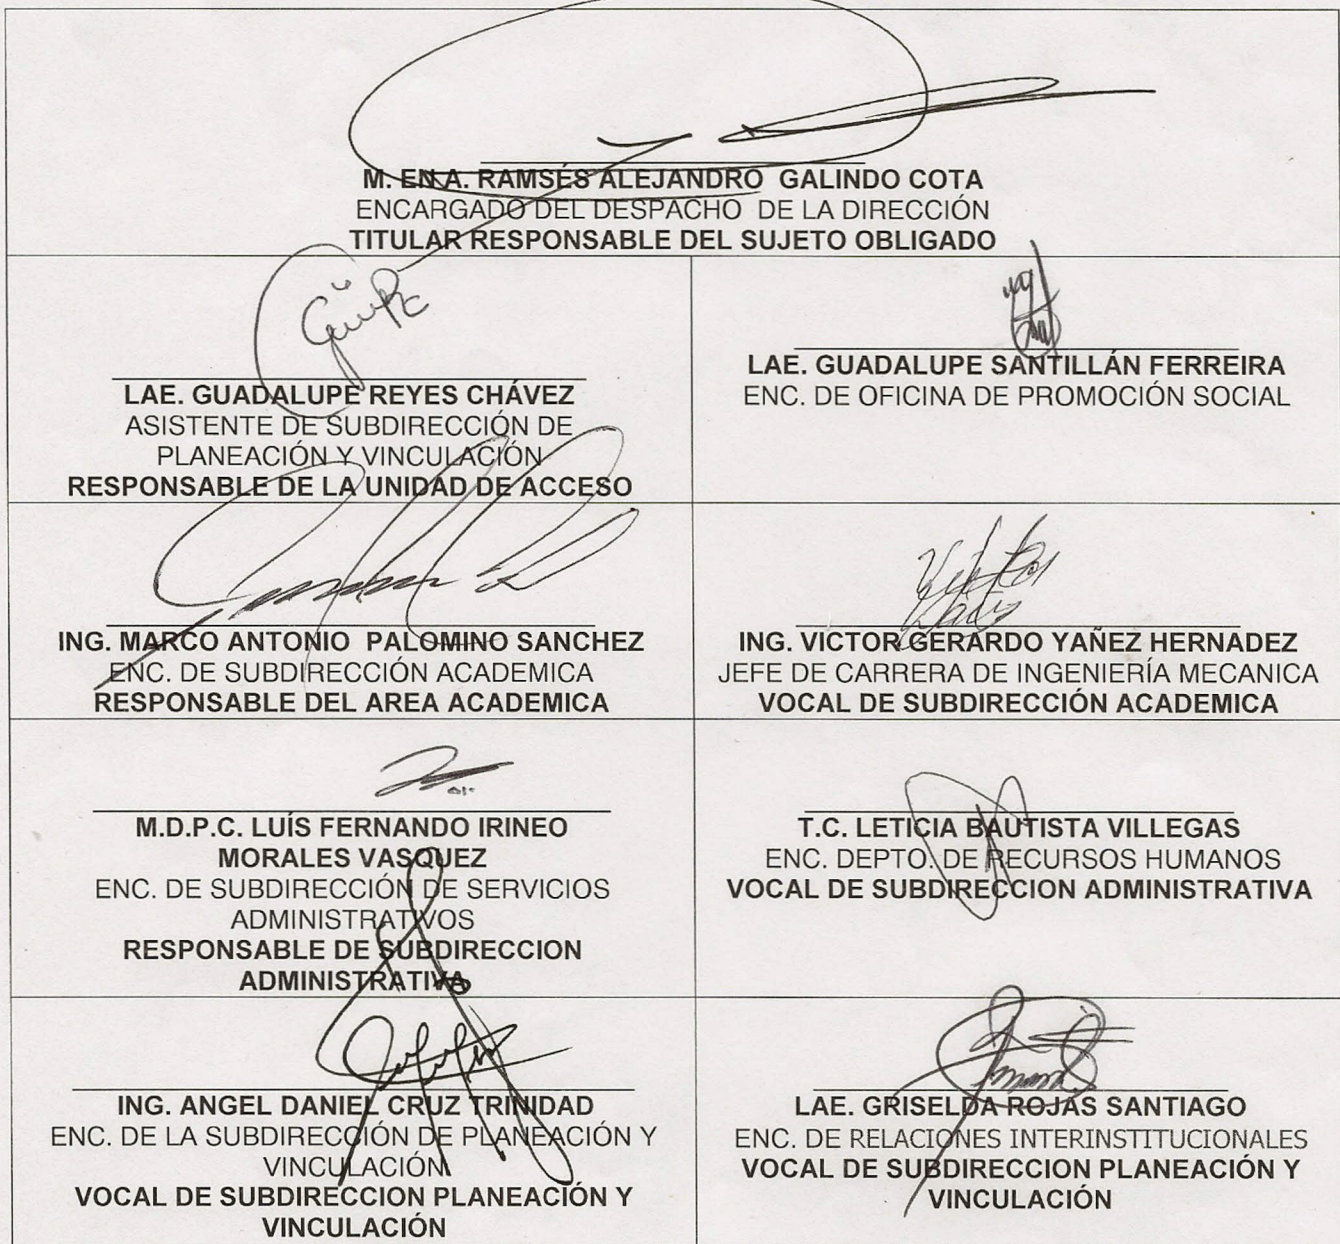 M. EN A. RAMSÉS ALEJANDRO GALINDO COTA
ENCARGADO DEL DESPACHO DE LA DIRECCIÓN
TITULAR RESPONSABLE DEL SUJETO OBLIGADO
LAE. GUADALUPE REYES CHÁVEZ
ASISTENTE DE SUBDIRECCIÓN DE
PLANEACIÓN Y VINCULACIÓN
RESPONSABLE DE LA UNIDAD DE ACCESO
LAE. GUADALUPE SANTILLÁN FERREIRA
ENC. DE OFICINA DE PROMOCIÓN SOCIAL
ING. MARCO ANTONIO PALOMINO SANCHEZ
ENC. DE SUBDIRECCIÓN ACADEMICA
RESPONSABLE DEL AREA ACADEMICA
ING. VICTOR GERARDO YAÑEZ HERNADEZ
JEFE DE CARRERA DE INGENIERÍA MECANICA
VOCAL DE SUBDIRECCIÓN ACADEMICA
M.D.P.C. LUÍS FERNANDO IRINEO
MORALES VASQUEZ
ENC. DE SUBDIRECCIÓN DE SERVICIOS
ADMINISTRATIVOS
RESPONSABLE DE SUBDIRECCION
ADMINISTRATIVA
T.C. LETICIA BAUTISTA VILLEGAS
ENC. DEPTO. DE RECURSOS HUMANOS
VOCAL DE SUBDIRECCION ADMINISTRATIVA
ING. ANGEL DANIEL CRUZ TRINIDAD
ENC. DE LA SUBDIRECCIÓN DE PLANEACIÓN Y
VINCULACIÓN
VOCAL DE SUBDIRECCION PLANEACIÓN Y
VINCULACIÓN
LAE. GRISELDA ROJAS SANTIAGO
ENC. DE RELACIONES INTERINSTITUCIONALES
VOCAL DE SUBDIRECCION PLANEACIÓN Y
VINCULACIÓN